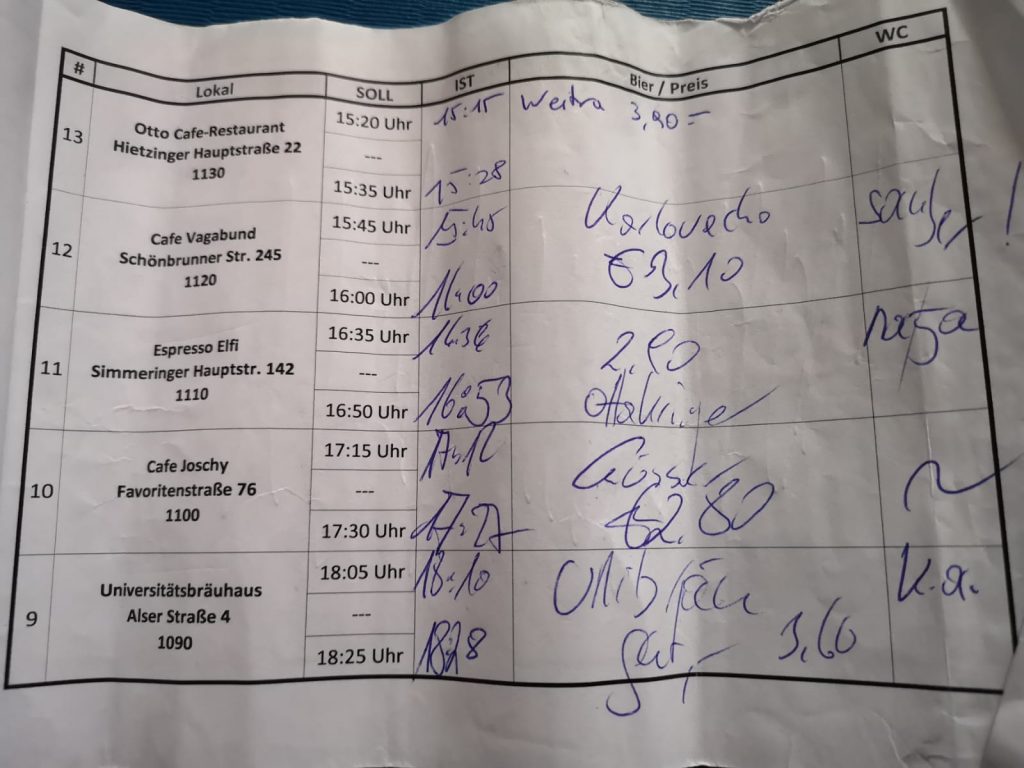 # Lokal SOLL IST Bier / Preis WC
13 Otto Cafe-Restaurant Hietzinger Hauptstraße 22 1130
15:20 Uhr 15:15 Weitra 3,90-
---
15:35 Uhr 15:28
12 Cafe Vagabund Schönbrunner Str. 245 1120
15:45 Uhr 15:45 Karlovacko sauber!
---
€3,10
16:00 Uhr 16:00
11 Espresso Elfi Simmeringer Hauptstr. 142 1110
16:35 Uhr naja
---
2,90
16:50 Uhr 16:53 Ottakringer
10 Cafe Joschy Favoritenstraße 76 1100
17:15 Uhr 17:12 Gösser ~
---
€2,80
17:30 Uhr 17:27
9 Universitätsbräuhaus Alser Straße 4 1090
18:05 Uhr 18:10 k.a.
---
18:25 Uhr 18:28 3,60